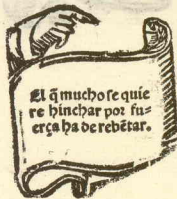 El q̃ mucho ſe quie
re hinchar por fu-
erça ha de rebẽtar.